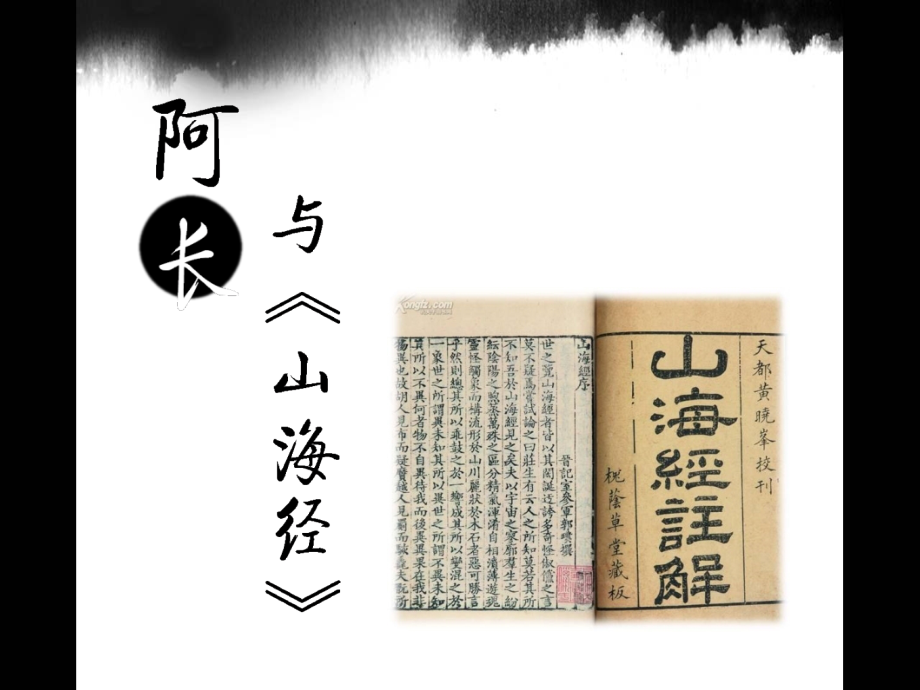 阿长
与《山海经》
天都黄曉峯校刊
山海經註解
槐蔭草堂藏板
山海經序
晉記室參軍郭璞撰
世之覽山海經者皆以其閎誕迂誇多奇怪俶儻之言
莫不疑焉嘗試論之曰莊生有云人之所知莫若其所
不知吾於山海經見之矣夫以宇宙之寥廓羣生之紛
紜陰陽之煦蒸萬殊之區分精氣渾淆自相濆薄遊魂
靈怪觸象而構流形於山川麗狀於木石者惡可勝言
乎然則總其所以乖鼓之於一響成其所以變混之於
一象世之所謂異未知其所以異世之所謂不異未知
其所以不異何者物不自異待我而後異異果在我非
物異也故胡人見布而疑黂越人見罽而駭毳夫翫所